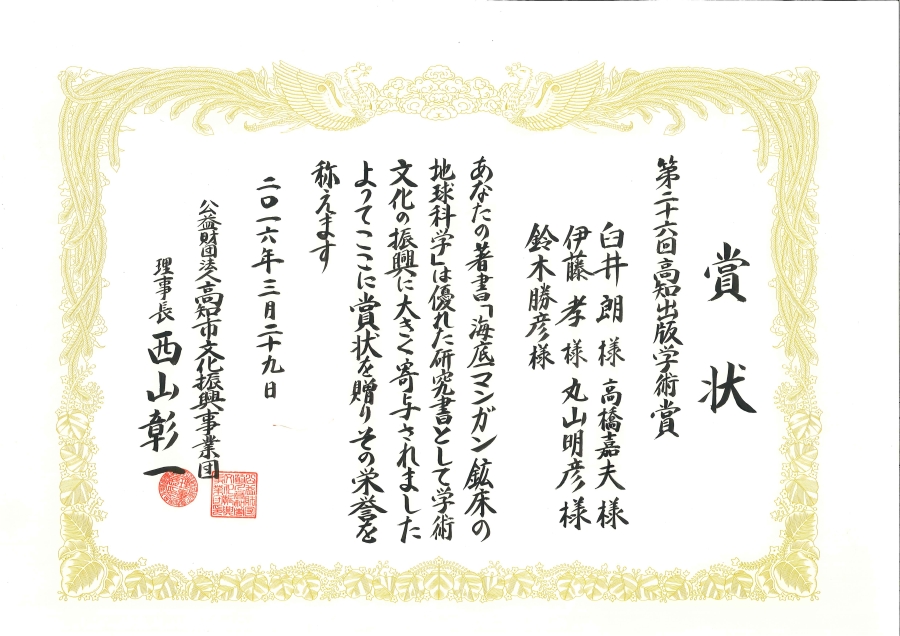 賞状
第二十六回高知出版学術賞
臼井朗様 高橋嘉夫様
伊藤孝様 丸山明彦様
鈴木勝彦様
あなたの著書「海底マンガン鉱床の
地球科学」は優れた研究書として学術
文化の振興に大きく寄与されました
よってここに賞状を贈りその栄誉を
称えます
二〇一六年三月二十九日
公益財団法人高知市文化振興事業団
理事長 西山彰一